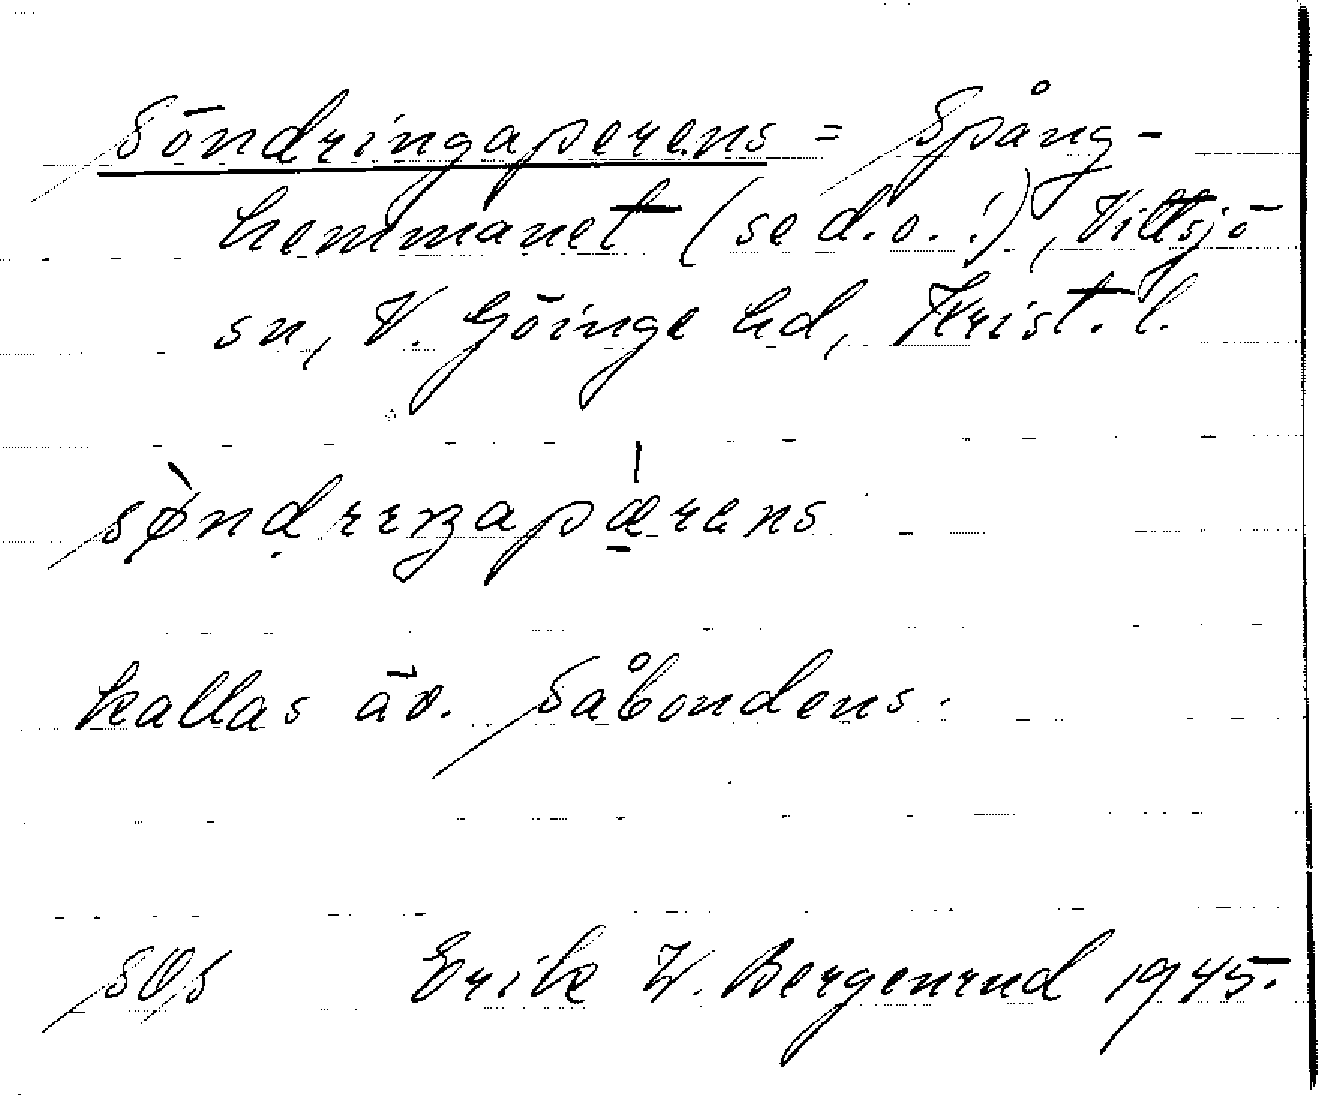 Söndringaperens = Spång-
hemmanet (se d.o.!), Vittsjö
sn, V. Göinge hd, Krist. l.
sø̀ndrɪŋapǽrens
kallas äv. Såbondens.
SOS Erik W. Bergenrud 1945.